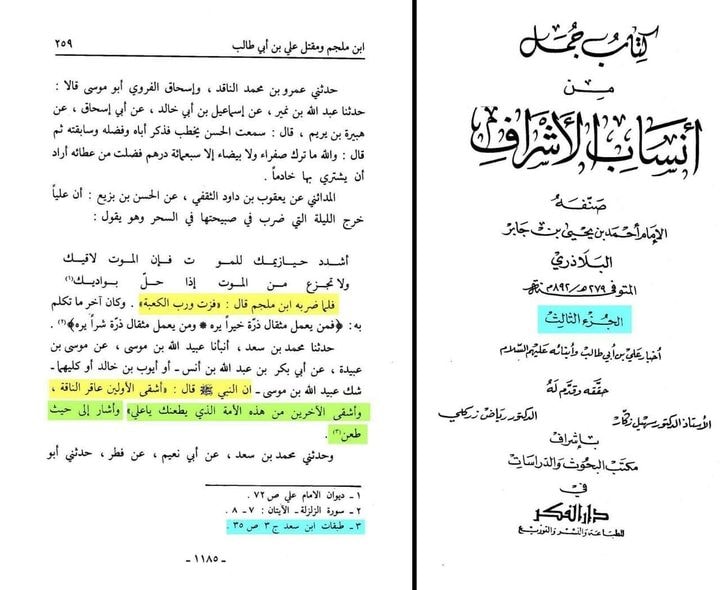 ابن ملجم ومقتل علي بن أبي طالب ٢٥٩
حدثني عمرو بن محمد الناقد ، وإسحاق الفروي أبو موسى قالا :
حدثنا عبد الله بن نمير ، عن إسماعيل بن أبي خالد ، عن أبي إسحاق ، عن
هبيرة بن يريم ، قال : سمعت الحسن يخطب فذكر أباه وفضله وسابقته ثم
قال : والله ما ترك صفراء ولا بيضاء إلا سبعمائة درهم فضلت من عطائه أراد
أن يشتري بها خادماً .
المدائني عن يعقوب بن داود الثقفي ، عن الحسن بن بزيع : أن علياً
خرج الليلة التي ضرب في صبيحتها في السحر وهو يقول :
أشدد حيازيمك للمو ت فإن الموت لاقيك
ولا تجزع من الموت إذا حلّ بواديك(١)
فلما ضربه ابن ملجم قال : «فزت ورب الكعبة» . وكان آخر ما تكلم
به : ﴿فمن يعمل مثقال ذرّة خيراً يره * ومن يعمل مثقال ذرّة شراً يره﴾(٢) .
حدثنا محمد بن سعد ، أنبأنا عبيد الله بن موسى ، عن موسى بن
عبيدة ، عن أبي بكر بن عبد الله بن أنس ـ أو أيوب بن خالد أو كليهما ـ
شك عبيد الله بن موسى ـ ان النبي ﷺ قال : «أشقى الأولين عاقر الناقة ،
وأشقى الآخرين من هذه الأمة الذي يطعنك ياعلي» وأشار إلى حيث
طعن(٣) .
وحدثني محمد بن سعد ، عن أبي نعيم ، عن فطر ، حدثني أبو
١ ـ ديوان الامام علي ص ٧٢ .
٢ ـ سورة الزلزلة ـ الآيتان : ٧ ـ ٨ .
٣ ـ طبقات ابن سعد ج ٣ ص ٣٥ .
ـ ١١٨٥ ـ
كتاب جمل
من
أنساب الأشراف
صنفه
الإمام أحمد بن يحيى بن جابر
البلاذري
المتوفى ٢٧٩هـ/٨٩٢م
الجزء الثالث
أخبار علي بن أبي طالب وأبنائه عليهم السلام
حققه وقدم له
الأستاذ الدكتور سهيل زكار الدكتور رياض زركلي
بإشراف
مكتب البحوث والدراسات
في
دار الفكر
للطباعة والنشر والتوزيع